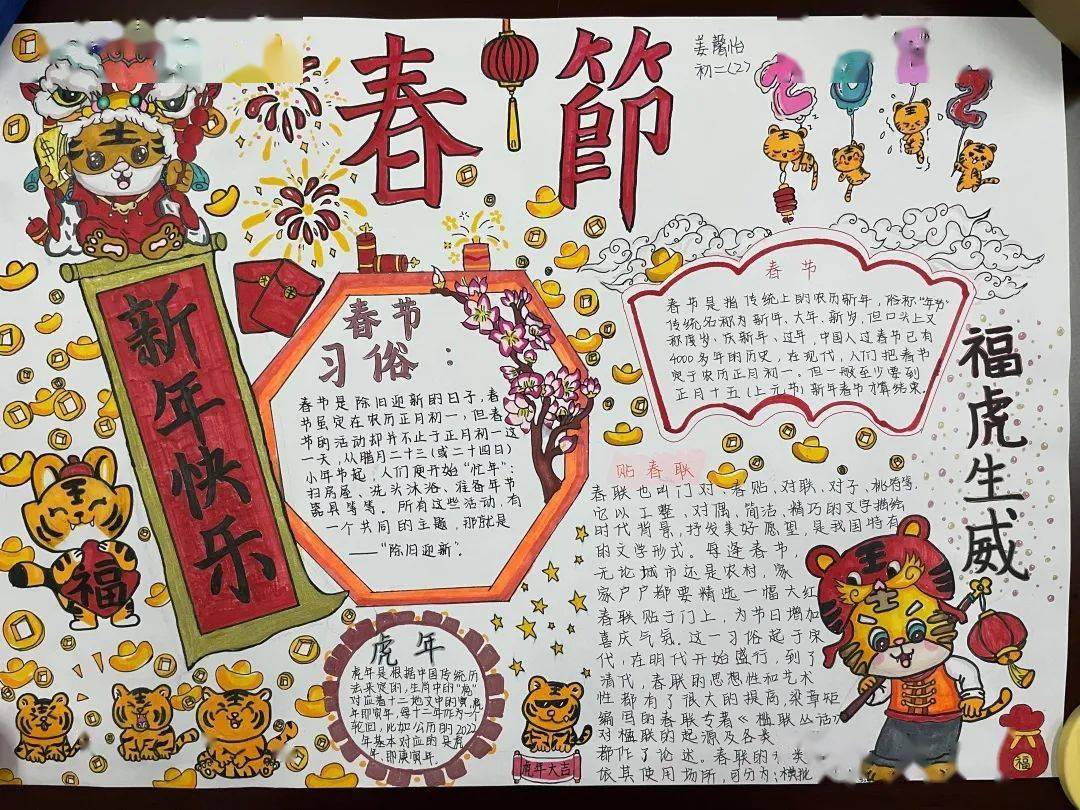 春節
姜馨怡
初二(2)
2022
新年快乐
春节
习俗：
春节是除旧迎新的日子，春
节虽定在农历正月初一，但春
节的活动却并不止于正月初一这
一天，从腊月二十三（或二十四日）
小年节起，人们便开始“忙年”：
扫房屋、洗头沐浴、准备年节
器具等等。所有这些活动，有
一个共同的主题，那就是
——“除旧迎新”。
春节
春节是指传统上的农历新年，俗称“年节”
传统名称为新年、大年、新岁，但口头上又
称度岁、庆新年、过年，中国人过春节已有
4000多年的历史，在现代，人们把春节
定于农历正月初一。但一般至少要到
正月十五（上元节）新年春节才算结束。
福虎生威
贴春联
春联也叫门对、春贴、对联、对子、桃符等，
它以工整、对偶、简洁、精巧的文字描绘
时代背景，抒发美好愿望，是我国特有
的文学形式。每逢春节，
无论城市还是农村，家
家户户都要精选一幅大红
春联贴于门上，为节日增加
喜庆气氛。这一习俗起于宋
代，在明代开始盛行，到了
清代，春联的思想性和艺术
性都有了很大的提高，梁章矩
编写的春联专著《槛联丛话》
对楹联的起源及各类
都作了论述。春联的 类
依其使用场所，可分为：横批
福
虎年
虎年是根据中国传统历
法来定的，生肖中的“虎”
对应着十二地支中的寅，虎
年即寅年，每十二年作为一个
轮回，比如公历的2022
年基本对应的是寅
年，即庚寅年。
虎年大吉
福